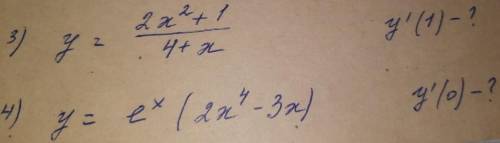 3) y = (2x² + 1)/(4 + x) y'(1) - ?
4) y = eˣ (2x⁴ - 3x) y'(0) - ?